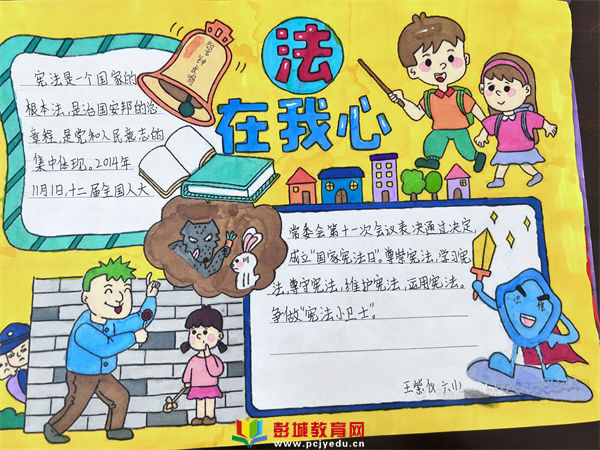 法
在我心
警钟长鸣
宪法是一个国家的
根本法，是治国安邦的总
章程，是党和人民意志的
集中体现。2014年
11月1日，十二届全国人大
常委会第十一次会议表决通过决定，
成立“国家宪法日”。尊崇宪法，学习宪
法，尊守宪法，维护宪法，运用宪法。
争做“宪法小卫士”。
彭城教育网
www.pcjyedu.cn